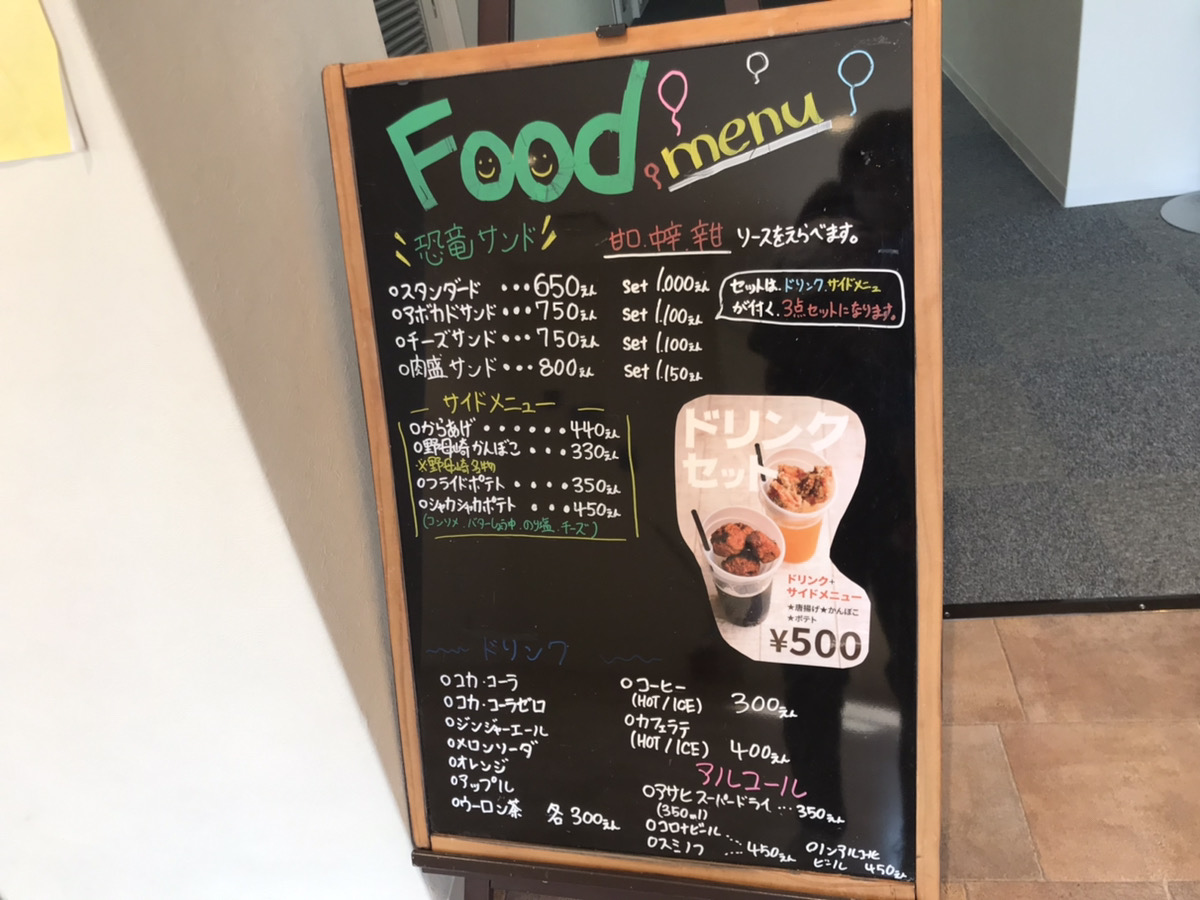 Food menu
恐竜サンド
甘口.中辛.辛口 ソースをえらべます。
○スタンダード ・・・650えん set 1.000えん
○アボカドサンド・・・750えん set 1.100えん
○チーズサンド・・・750えん set 1.100えん
○肉盛サンド・・・800えん set 1.150えん
セットは.ドリンク.サイドメニュー
が付く.3点セットになります。
サイドメニュー
○からあげ・・・・・・440えん
○野母崎かんぼこ・・・330えん
※野母崎名物
○フライドポテト・・・・350えん
○シャカシャカポテト・・・450えん
(コンソメ.バターしょうゆ.のり塩.チーズ)
ドリンク
セット
ドリンク+
サイドメニュー
★唐揚げ★かんぼこ
★ポテト
¥500
ドリンク
○コカ・コーラ
○コカ・コーラゼロ
○ジンジャーエール
○メロンソーダ
○オレンジ
○アップル
○ウーロン茶 各300えん
○コーヒー
(HOT/ICE) 300えん
○カフェラテ
(HOT/ICE) 400えん
アルコール
○アサヒスーパードライ…350えん
(350ml)
○コロナビール….
○スミノフ ….450えん
○ノンアルコール
ビール 450えん